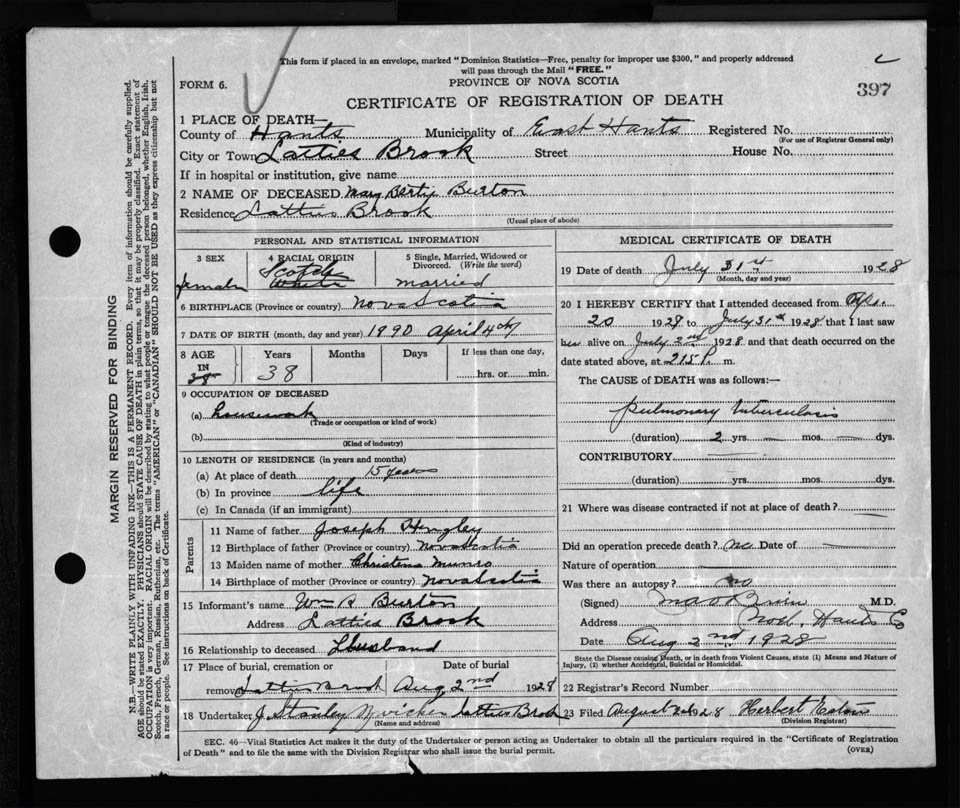 This form if placed in an envelope, marked "Dominion Statistics—Free, penalty for improper use $300," and properly addressed
will pass through the Mail "FREE."
FORM 6.
PROVINCE OF NOVA SCOTIA
397
CERTIFICATE OF REGISTRATION OF DEATH
1 PLACE OF DEATH—
County of Hants Municipality of East Hants Registered No.
(For use of Registrar General only)
City or Town Latties Brook Street House No.
If in hospital or institution, give name
2 NAME OF DECEASED Mary Burton
Residence Latties Brook
(Usual place of abode)
PERSONAL AND STATISTICAL INFORMATION
3 SEX
female
4 RACIAL ORIGIN
Scotch
White
5 Single, Married, Widowed or
Divorced. (Write the word)
married
6 BIRTHPLACE (Province or country) Nova Scotia
7 DATE OF BIRTH (month, day and year) 1890 April 4th
8 AGE
IN
38
Years
38
Months
Days
If less than one day,
hrs. or min.
9 OCCUPATION OF DECEASED
(a) housework
(Trade or occupation or kind of work)
(b)
(Kind of industry)
10 LENGTH OF RESIDENCE (in years and months)
(a) At place of death 15 years
(b) In province life
(c) In Canada (if an immigrant)
Parents
11 Name of father Joseph Hingley
12 Birthplace of father (Province or country) Nova Scotia
13 Maiden name of mother Christena Munro
14 Birthplace of mother (Province or country) Nova Scotia
15 Informant's name Wm R Burton
Address Latties Brook
16 Relationship to deceased Husband
17 Place of burial, cremation or
removal Latties Brook
Date of burial
Aug 2nd 1928
18 Undertaker J. Stanley Latties Brook
(Name and address)
MEDICAL CERTIFICATE OF DEATH
19 Date of death July 31st 1928
(Month, day and year)
20 I HEREBY CERTIFY that I attended deceased from Apr.
20 1928 to July 31st 1928 that I last saw
her alive on July 2nd 1928 and that death occurred on the
date stated above, at 215 P. m.
The CAUSE OF DEATH was as follows:—
pulmonary tuberculosis
(duration) 2 yrs. — mos. — dys.
CONTRIBUTORY
(duration) yrs. mos. dys.
21 Where was disease contracted if not at place of death?
Did an operation precede death? no Date of
Nature of operation
Was there an autopsy? no
(Signed) M.D.
Address Noel, Hants Co
Date Aug 2nd 1928
State the Disease causing Death, or in death from Violent Causes, state (1) Means and Nature of
Injury, (2) whether Accidental, Suicidal or Homicidal.
22 Registrar's Record Number
23 Filed August 1928 Herbert
(Division Registrar)
SEC. 46—Vital Statistics Act makes it the duty of the Undertaker or person acting as Undertaker to obtain all the particulars required in the "Certificate of Registration
of Death" and to file the same with the Division Registrar who shall issue the burial permit.
(OVER)
MARGIN RESERVED FOR BINDING
N.B.—WRITE PLAINLY WITH UNFADING INK—THIS IS A PERMANENT RECORD. Every item of information should be carefully supplied.
AGE should be stated EXACTLY. PHYSICIANS should STATE CAUSE OF DEATH in plain terms, so that it may be properly classified. Exact statement of
OCCUPATION is very important. RACIAL ORIGIN will be described by stating to what people or tongue the deceased person belonged, whether English, Irish,
Scotch, French, German, Russian, Ruthenian, etc. The terms "AMERICAN" or "CANADIAN" SHOULD NOT BE USED as they express citizenship but not
a race or people. See instructions on back of Certificate.